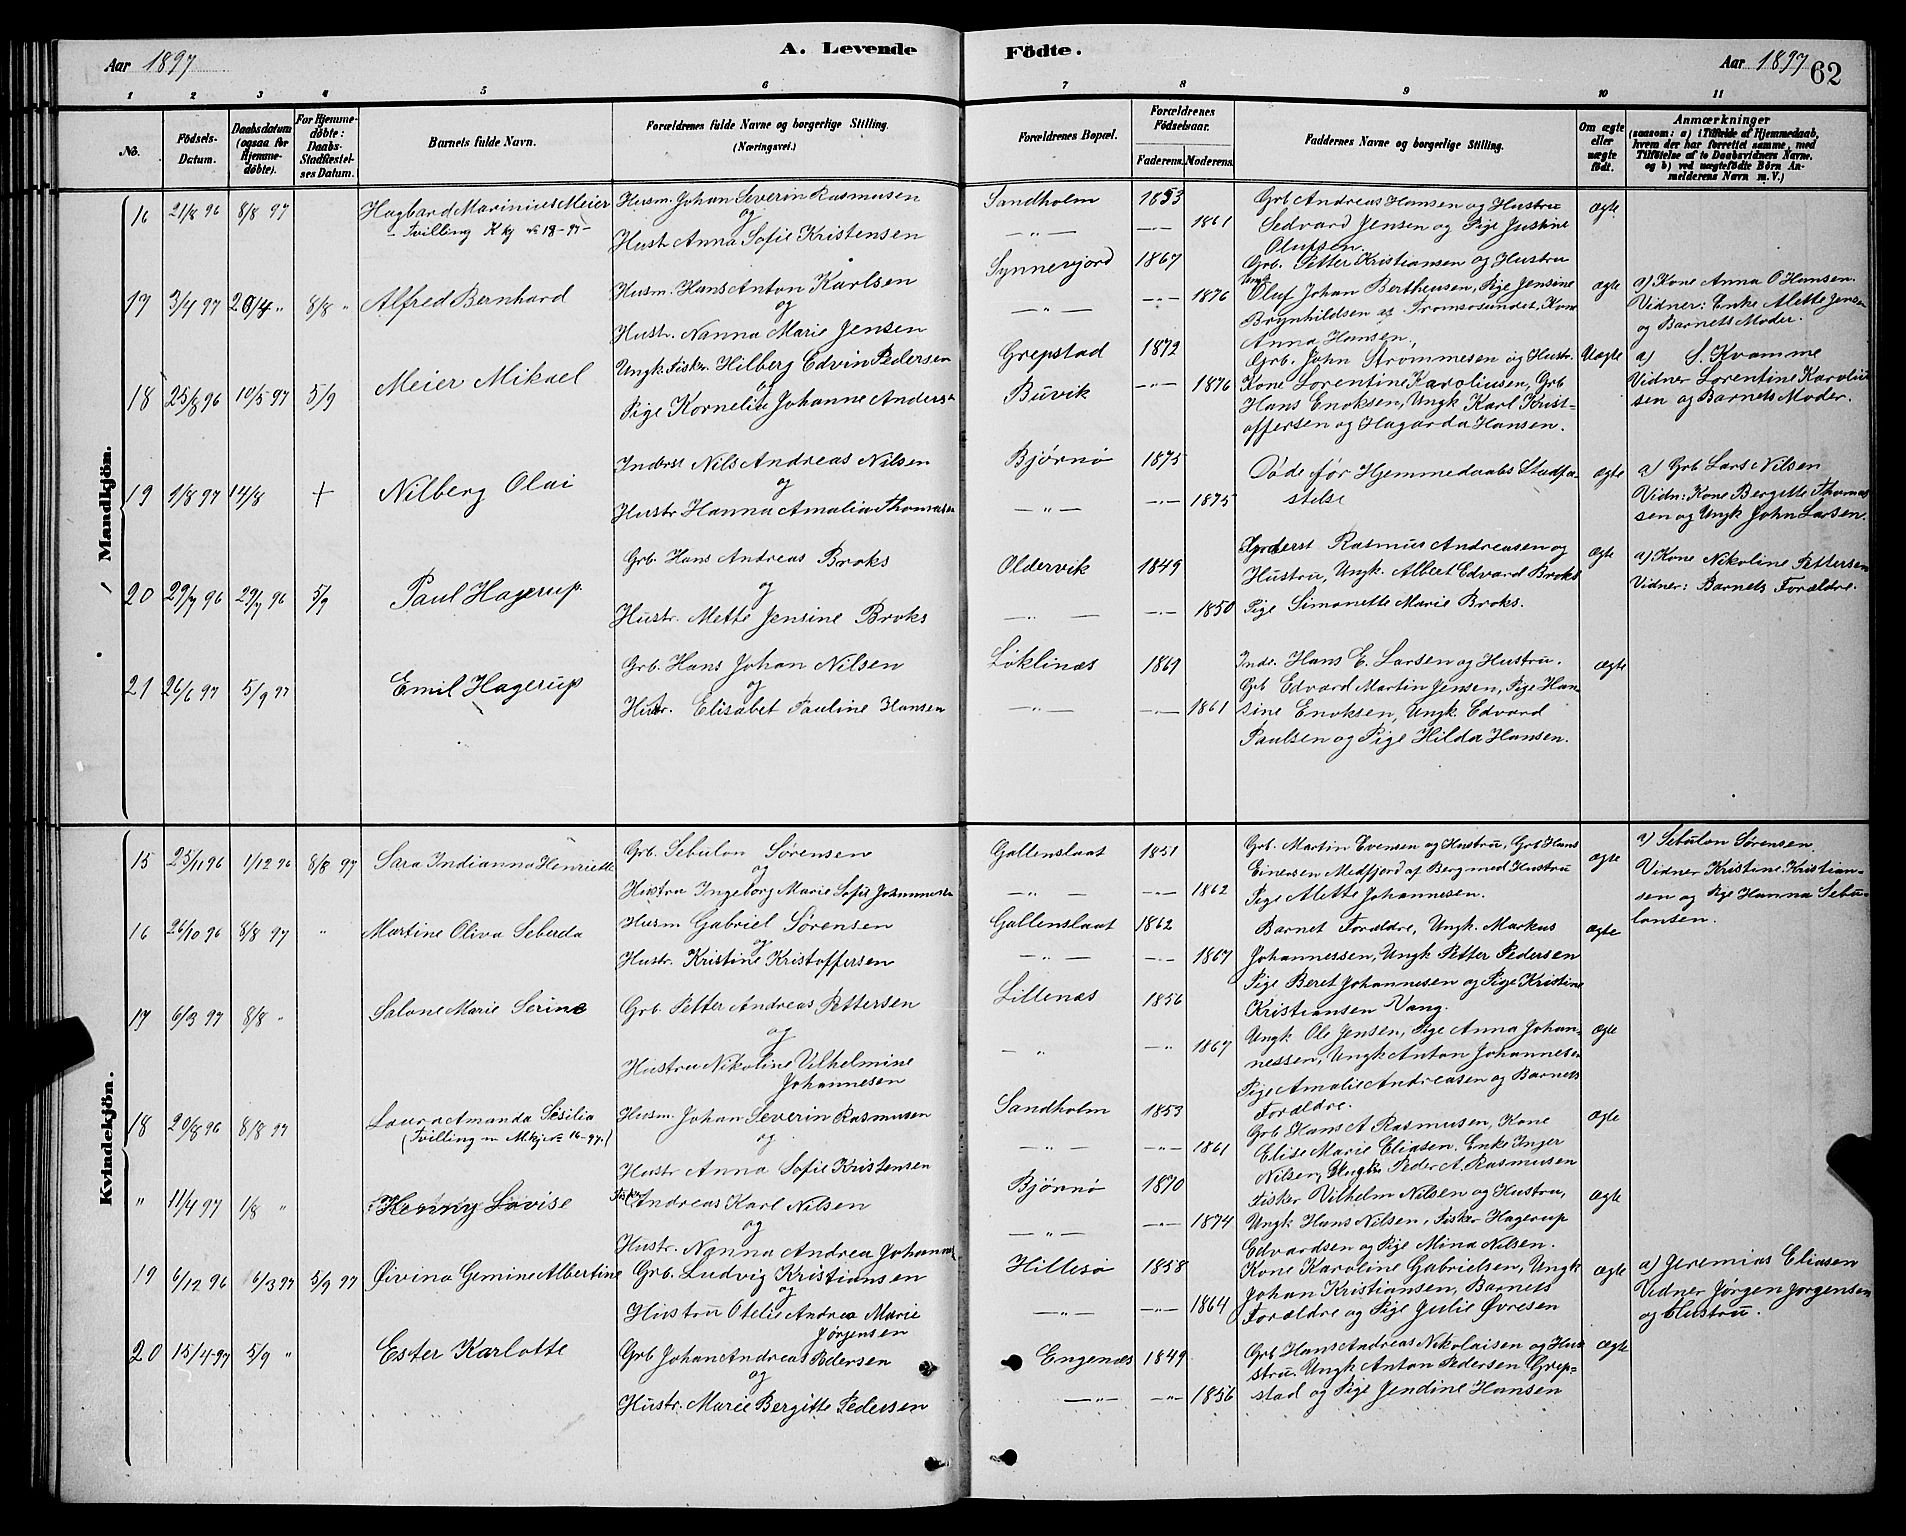 Aar 1897
A. Levende Födte.
Aar 1897
62
1 2 3 4 5 6 7 8 9 10 11
No.
Födsels-Datum.
Daabsdatum (ogsaa for Hjemme-døbte).
For Hjemme-døbte: Daabs-Stadfæstel-ses Datum.
Barnets fulde Navn.
Forældrenes fulde Navne og borgerlige Stilling.
(Næringsvei.)
Forældrenes Bopæl.
Forældrenes Födselsaar.
Faderens. Moderens.
Faddernes Navne og borgerlige Stilling.
Om ægte eller uægte födt.
Anmærkninger
(saasom: a) i Tilfælde af Hjemmedaab,
hvem der har forrettet samme, med
Tilföielse af to Daabsvidners Navne,
og b) ved uægtefödte Börn An-
melderens Navn m. V.)
Mandkjön.
16 21/8 96 8/8 97 Hagbard Marinius Meier
- Tvilling K kj № 18-97-
Husm. Johan Severin Rasmusen
og
Hust Anna Sofie Kristensen
Sandholm 1853
—„— —„— 1861
Grb Andreas Hansen og Hustru
Sedvard Jensen og Pige Justine
Olufsen.
ægte
17 3/4 97 20/4 „ 8/8 „ Alfred Bernhard
Husm. Hans Anton Karlsen
og
Hustr. Nanna Marie Jensen
Synnerjord 1867
—„— —„— 1876
Grb. Petter Kristiansen og Hustru
Ungk Oluf Johan Bertheusen, Pige Jensine
Brynhildsen af Tromsosundet, Kone
Anna Hansen,
ægte
a) Kone Anna O Hansen.
Vidner: Enke Alette Jensen
og Barnets Moder.
18 25/8 96 10/5 97 5/9 Meier Mikael
Ungk. Fisker. Hilberg Edvin Pedersen
og
Pige Kornelia Johanne Anders
Grepstad 1872
Buvik —„— 1876
Grb. John Strommesen og Hustr.
Kone Lorentine Karoliusen, Grb
Hans Enoksen, Ungk Karl Krist-
offersen og Hagarda Hansen.
Uægte
a) S. Kvamme
Vidner Lorentine Karoliu
sen og Barnets Moder.
19 1/8 97 14/8 + Nilberg Olai
Inderst Nils Andreas Nilsen
og
Hustr Hanna Amalia Thomasen
Bjørnø 1875
—„— —„— 1875
Døde før Hjemmedaabs Stadfæ-
stelse
ægte
a) Grb Lars Nilsen
Vidn: Kone Bergitte Thomas
sen og Ungk John Larsen.
20 29/7 96 29/7 96 5/9 Paul Hagerup
Grb. Hans Andreas Broks
og
Hustr. Mette Jensine Broks
Oldervik 1849
—„— —„— 1850
Inderst Rasmus Andreasen og
Hustru, Ungk. Albert Edvard Broks
Pige Simonette Marie Broks.
ægte
a) Kone Nikoline Pettersen
Vidner: Barnets Forældre.
21 26/6 97 5/9 97 Emil Hagerup
Grb. Hans Johan Nilsen
og
Hustr. Elisabet Pauline Hansen
Løklinæs 1869
—„— —„— 1861
Inde. Hans E. Larsen og Hustru.
Grb Edvard Martin Jensen, Pige Han-
sine Enoksen, Ungk. Edvard
Paulsen og Pige Hilda Hansen.
ægte
Kvindekjön.
15 25/11 96 1/12 96 8/8 97 Sara Indianna Henriette
Grb. Sebulon Sørensen
og
Hustru Ingeborg Marie Sofie Johannesen
Gallenslaat 1851
—„— —„— 1862
Grb. Martin Evensen og Hustru, Grb Hans
Einersen Medfjord af Berg med Hustru
Pige Alette Johannesen.
ægte
a) Sebulon Sørensen
Vidner Kristine Kristian-
sen og Pige Hanna Sebu-
lonsen.
16 26/10 96 8/8 97 „ Martine Oliva Seberda
Husm Gabriel Sørensen
og
Hustr. Kristine Kristoffersen
Gallenslaat 1862
—„— —„— 1867
Barnet Forældre, Ungk. Markus
Johannessen, Ungk Petter Pedersen
Pige Beret Johannesen og Pige Kristine
Kristiansen Vang.
ægte
17 6/3 97 8/8 „ Salone Marie Serine
Grb. Petter Andreas Pettersen
og
Hustru Nikoline Vilhelmine
Johannesen
Lillenæs 1856
—„ —„ 1867
Ungk Ole Jensen, Pige Anna Johan-
nessen, Ungk Anton Johannesen
Pige Amalie Andreasen og Barnets
Forældre.
ægte
18 20/8 96 8/8 97 Laura Amanda Sesilia
(Tvilling m Mkj № 16-97.)
Husm. Johan Severin Rasmusen
og
Hustr Anna Sofie Kristensen
Sandholm 1853
—„— —„— 1861
Grb Hans A Rasmusen, Kone
Elise Marie Eliasen, Enke Inger
Nilsen, Ungk. Peder A. Rasmusen
ægte
„ 11/4 97 1/8 „ Henny Lovise
Fisker Andreas Karl Nilsen
og
Hustr. Nanna Andrea Johannes
Bjørnø 1870
—„— —„— 1874
Fisker Vilhelm Nilsen og Hustru,
Ungk Hans Nilsen, Fisker Hagerup
Edvardsen og Pige Mina Nilsen.
ægte
19 6/12 96 6/3 97 5/9 97 Øivina Gemine Albertine
Grb. Ludvig Kristiansen
og
Hustru Otelie Andrea Marie
Jørgensen
Hillesø 1858
—„— —„— 1864
Kone Karoline Gabrielsen, Ungk
Johan Kristiansen, Barnets
Forældre og Pige Julie Øvresen
ægte
a) Jeremias Eliasen
Vidner Jørgen Jørgensen
og Hustru.
20 15/4-97 5/9 „ Ester Karlotte
Grb Johan Andreas Pedersen
og
Hustr. Marie Bergitte Pedersen
Engenæs 1849
—„— —„— 1856
Grb Hans Andreas Nikolaisen og Hus
stru. Ungk Anton Pedersen Grep-
stad og Pige Jendine Hansen
ægte